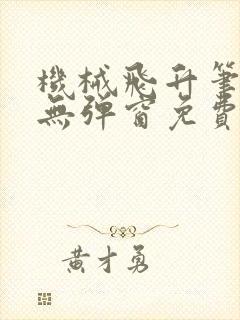 機械飛升筆
無彈窗免費
黃才勇